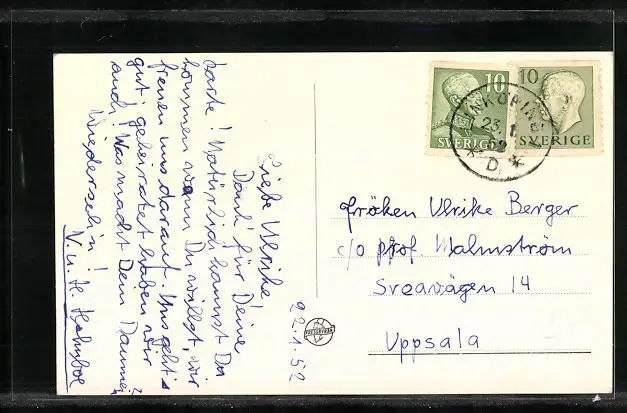 Liebe Ulrike!
Dank für Deine
Karte! Natürlich kannst Du
kommen wann Du willst, wir
freuen uns darauf. Uns geht's
gut; geheiratet haben wir
auch! Was macht Dein Daumen?
Wiedersehn!
V. u. H.
22.1.52
10
SVERIGE
10
SVERIGE
23.1
D.
Fröken Ulrike Berger
c/o prof. Malmström
Sveavägen 14
Uppsala